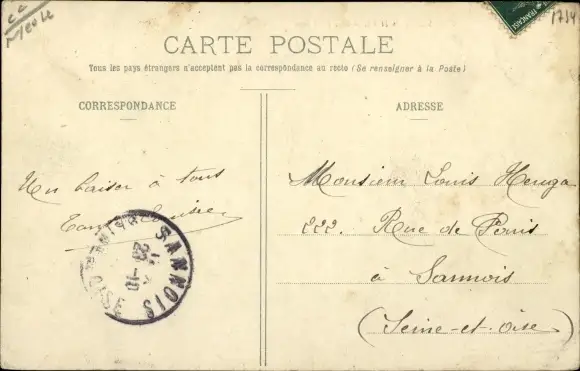 CARTE POSTALE
Tous les pays étrangers n'acceptent pas la correspondance au recto (Se renseigner à la Poste)
CORRESPONDANCE
ADRESSE
Un baiser à tous
Monsieur Louis
222. Rue de Paris
à Sannois
(Seine-et-Oise)
SANNOIS
OISE
1734